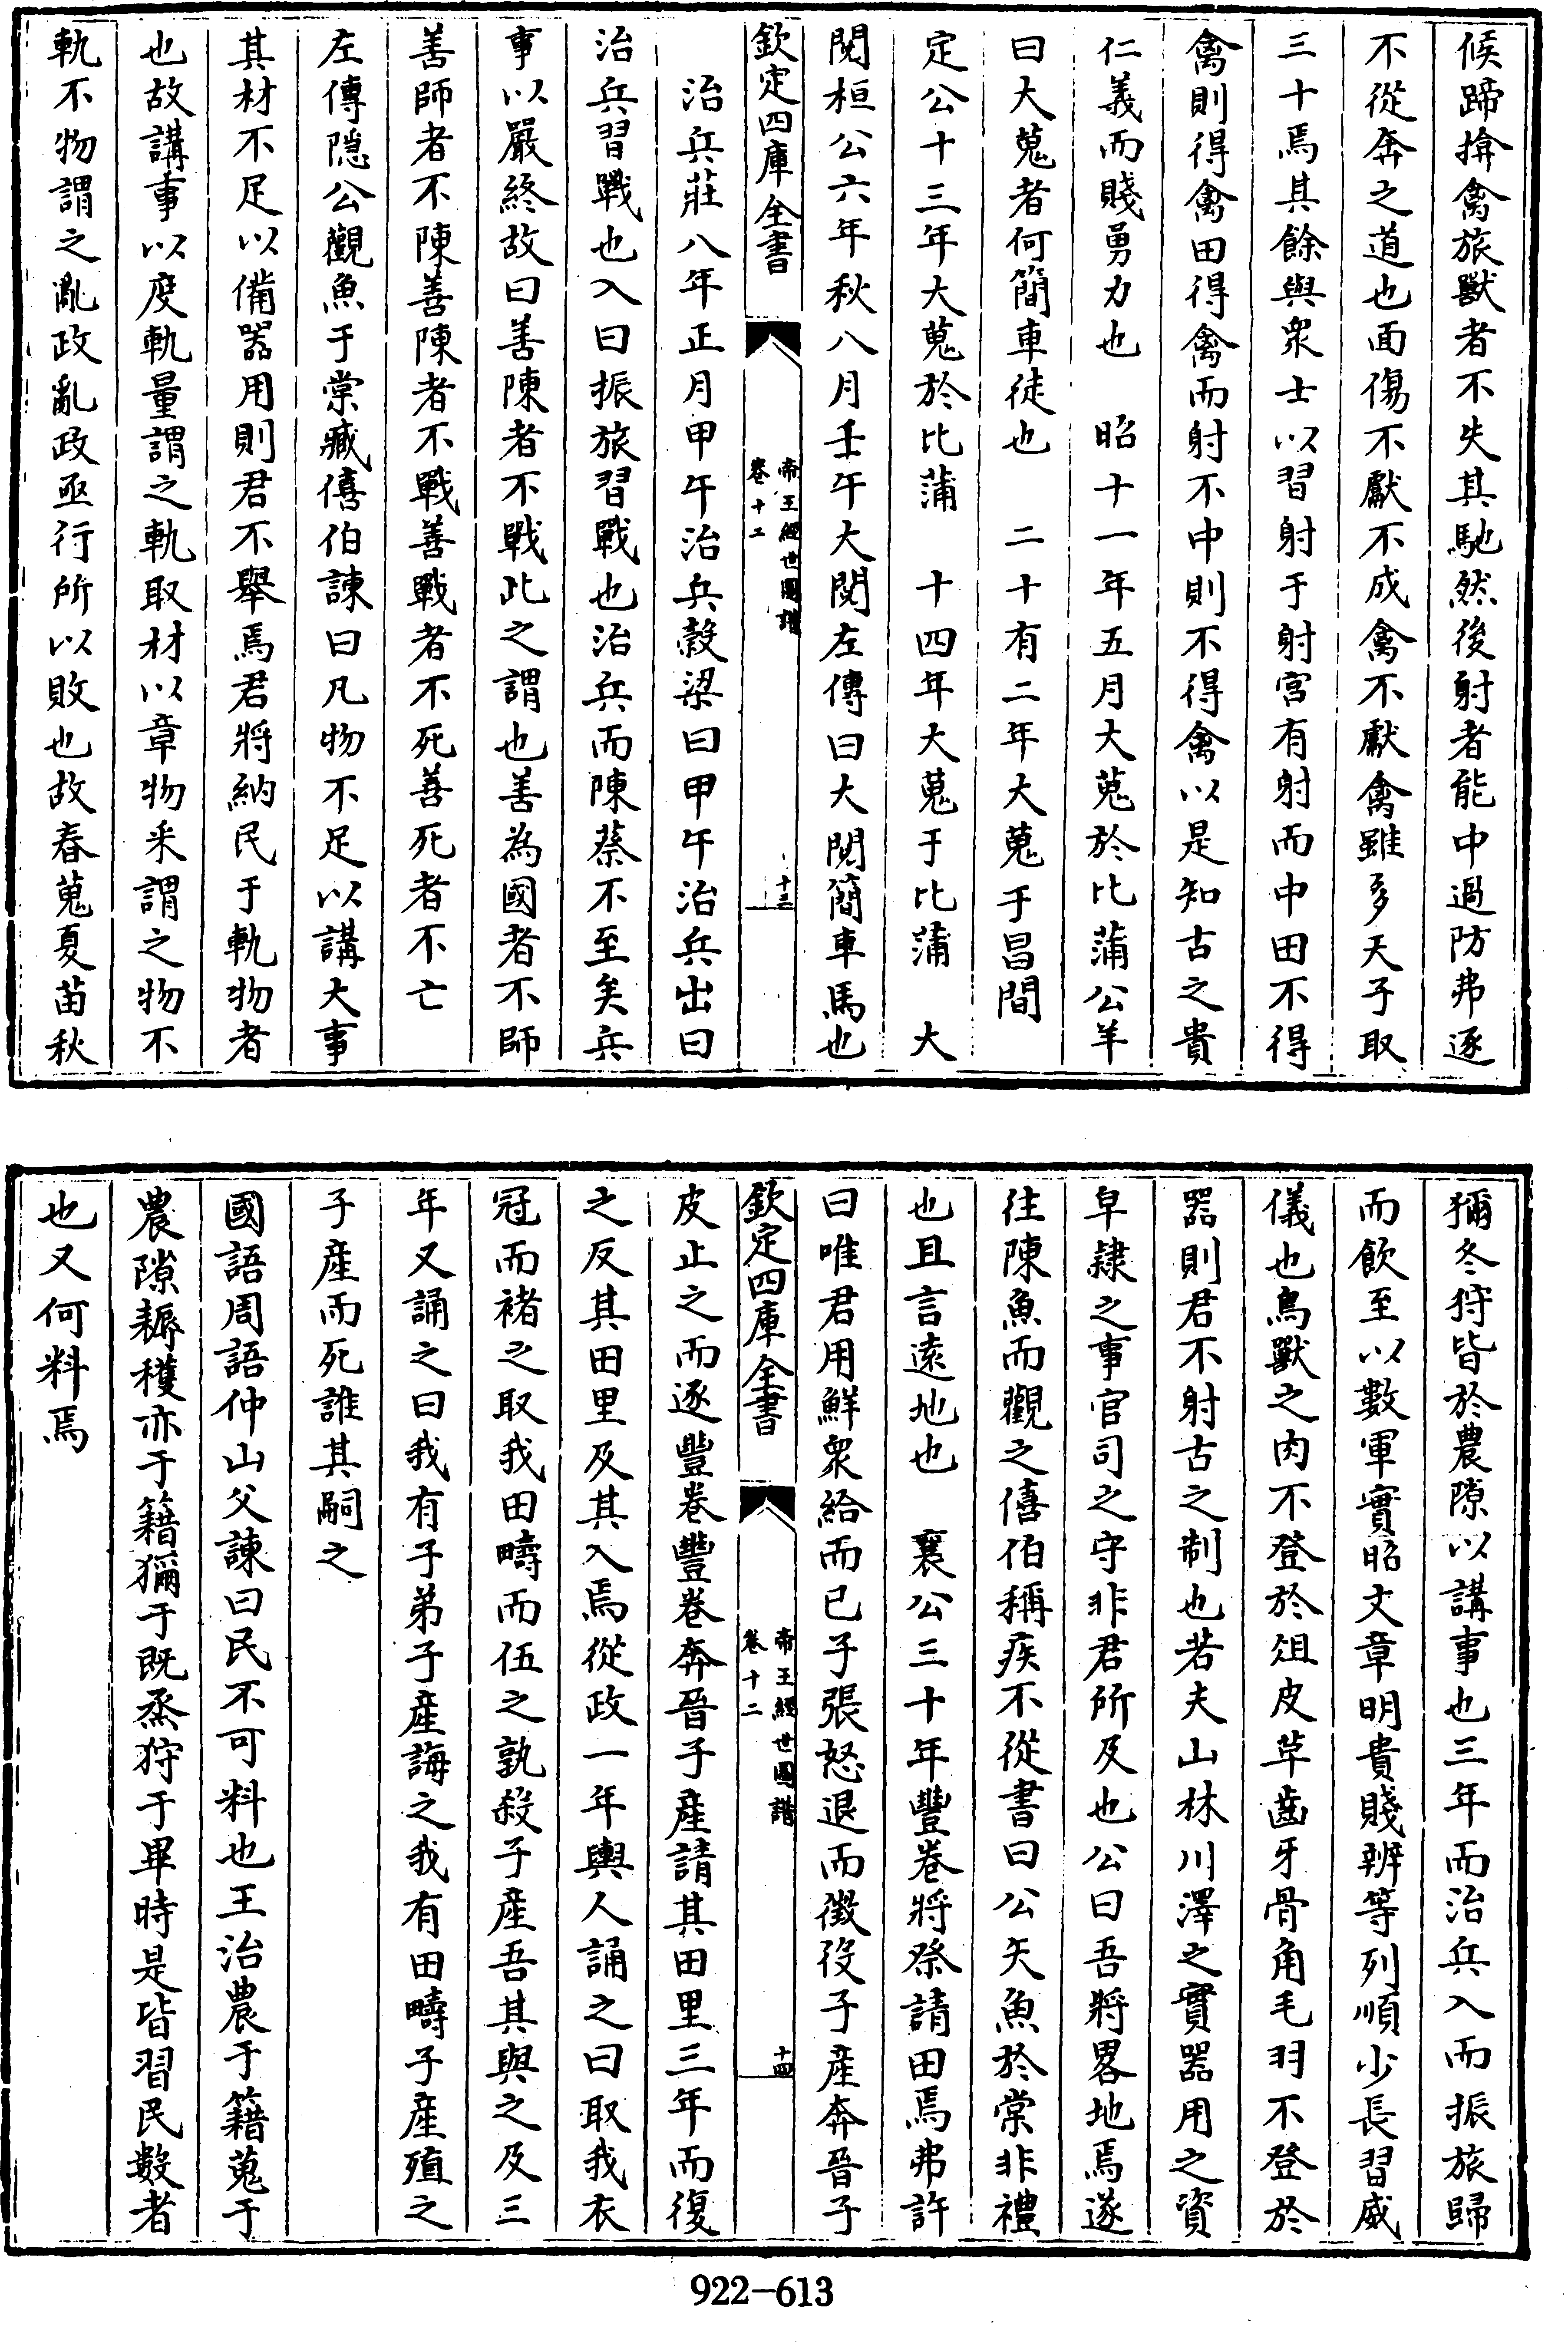 候蹄揜禽旅獸者不失其馳然後射者能中過防弗逐
不從奔之道也面傷不獻不成禽不獻禽雖多天子取
三十焉其餘與衆士以習射于射宮有射而中田不得
禽則得禽田得禽而射不中則不得禽以是知古之貴
仁義而賤勇力也　昭十一年五月大蒐於比蒲公羊
曰大蒐者何簡車徒也　二十有二年大蒐于昌間
定公十三年大蒐於比蒲　十四年大蒐于比蒲　大
閱桓公六年秋八月壬午大閱左傳曰大閱簡車馬也
欽定四庫全書
帝王經世圖譜
卷十二
十三
治兵莊八年正月甲午治兵穀梁曰甲午治兵出曰
治兵習戰也入曰振旅習戰也治兵而陳蔡不至矣兵
事以嚴終故曰善陳者不戰此之謂也善為國者不師
善師者不陳善陳者不戰善戰者不死善死者不亡
左傳隱公觀魚于棠臧僖伯諫曰凡物不足以講大事
其材不足以備器用則君不舉焉君將納民于軌物者
也故講事以度軌量謂之軌取材以章物采謂之物不
軌不物謂之亂政亂政亟行所以敗也故春蒐夏苗秋
獮冬狩皆於農隙以講事也三年而治兵入而振旅歸
而飲至以數軍實昭文章明貴賤辨等列順少長習威
儀也鳥獸之肉不登於俎皮革齒牙骨角毛羽不登於
器則君不射古之制也若夫山林川澤之實器用之資
皁隸之事官司之守非君所及也公曰吾將畧地焉遂
往陳魚而觀之僖伯稱疾不從書曰公矢魚於棠非禮
也且言遠地也　襄公三十年豐卷將祭請田焉弗許
曰唯君用鮮衆給而已子張怒退而徵役子產奔晉子
欽定四庫全書
帝王經世圖譜
卷十二
十四
皮止之而逐豐卷豐卷奔晉子產請其田里三年而復
之反其田里及其入焉從政一年輿人誦之曰取我衣
冠而褚之取我田疇而伍之孰殺子產吾其與之及三
年又誦之曰我有子弟子產誨之我有田疇子產殖之
子產而死誰其嗣之
國語周語仲山父諫曰民不可料也王治農于籍蒐于
農隙耨穫亦于籍獮于既烝狩于畢時是皆習民數者
也又何料焉
922-613